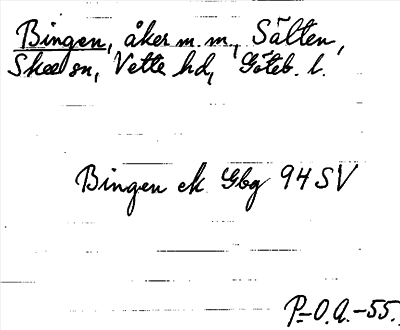 Bingen, åker m. m., Sälten,
Skee sn, Vette hd, Göteb. l.
Bingen ek Gbg 94 SV
P-O.A.-55.